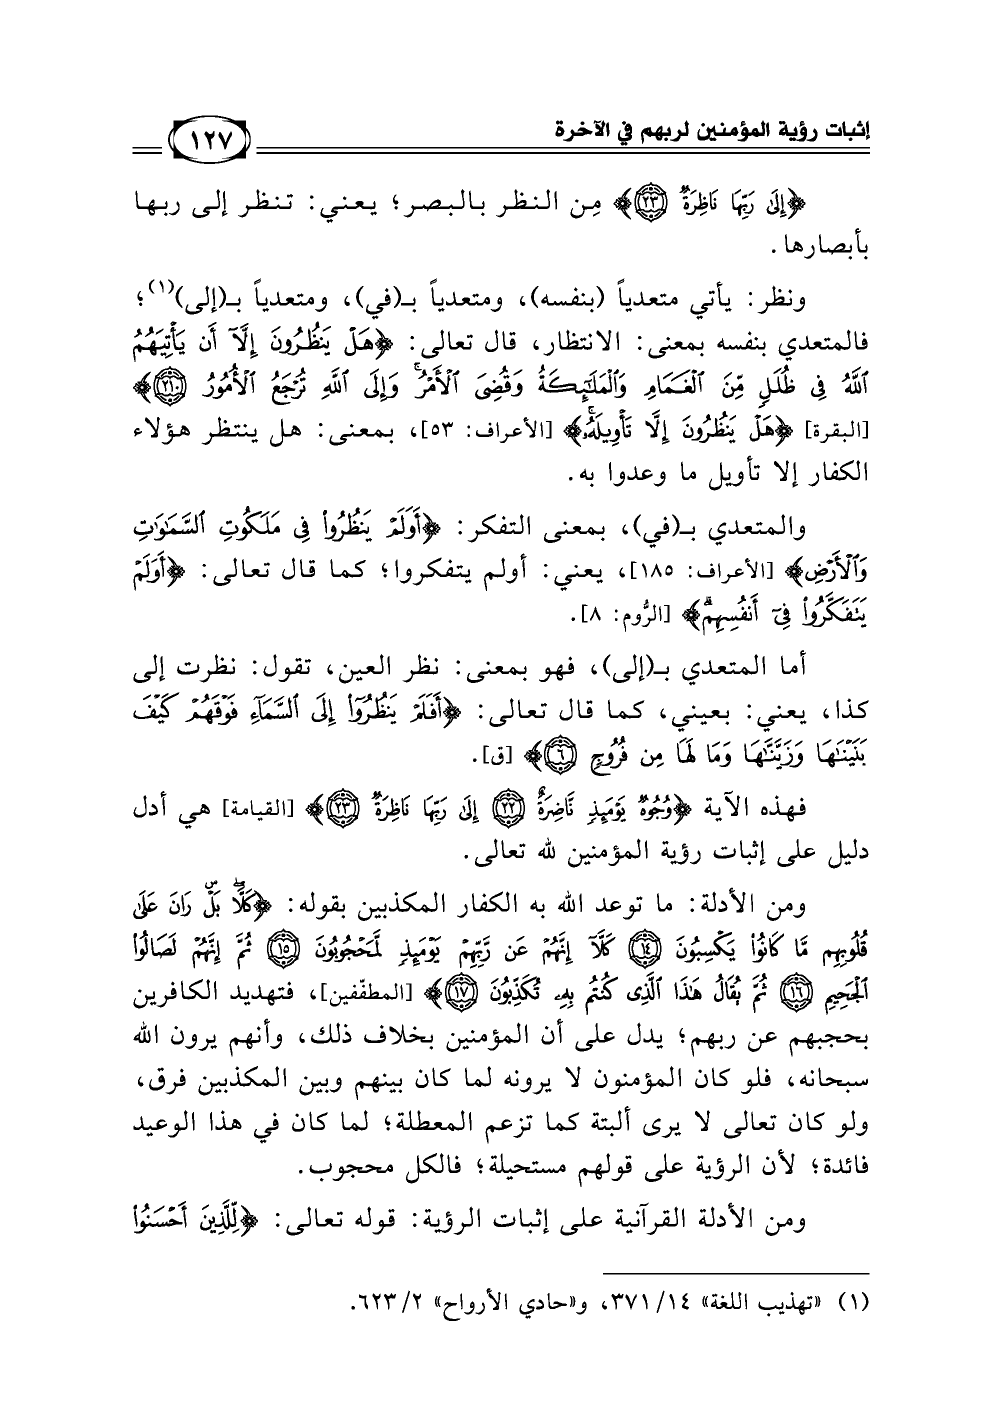 إثبات رؤية المؤمنين لربهم في الآخرة
١٢٧
﴿إِلَىٰ رَبِّهَا نَاظِرَةٌ ٢٣﴾ مِن النظر بالبصر؛ يعني: تنظر إلى ربها
بأبصارها.
ونظر: يأتي متعدياً (بنفسه)، ومتعدياً بـ(في)، ومتعدياً بـ(إلى)(١)؛
فالمتعدي بنفسه بمعنى: الانتظار، قال تعالى: ﴿هَلْ يَنظُرُونَ إِلَّآ أَن يَأْتِيَهُمُ
ٱللَّهُ فِي ظُلَلٍ مِّنَ ٱلْغَمَامِ وَٱلْمَلَٰٓئِكَةُ وَقُضِيَ ٱلْأَمْرُ ۚ وَإِلَى ٱللَّهِ تُرْجَعُ ٱلْأُمُورُ ٢١٠﴾
[البقرة] ﴿هَلْ يَنظُرُونَ إِلَّا تَأْوِيلَهُۥ ۚ﴾ [الأعراف: ٥٣]، بمعنى: هل ينتظر هؤلاء
الكفار إلا تأويل ما وعدوا به.
والمتعدي بـ(في)، بمعنى التفكر: ﴿أَوَلَمْ يَنظُرُوا۟ فِي مَلَكُوتِ ٱلسَّمَٰوَٰتِ
وَٱلْأَرْضِ﴾ [الأعراف: ١٨٥]، يعني: أولم يتفكروا؛ كما قال تعالى: ﴿أَوَلَمْ
يَتَفَكَّرُوا۟ فِيٓ أَنفُسِهِم ۗ﴾ [الرُّوم: ٨].
أما المتعدي بـ(إلى)، فهو بمعنى: نظر العين، تقول: نظرت إلى
كذا، يعني: بعيني، كما قال تعالى: ﴿أَفَلَمْ يَنظُرُوٓا۟ إِلَى ٱلسَّمَآءِ فَوْقَهُمْ كَيْفَ
بَنَيْنَٰهَا وَزَيَّنَّٰهَا وَمَا لَهَا مِن فُرُوجٍ ٦﴾ [ق].
فهذه الآية ﴿وُجُوهٌ يَوْمَئِذٍ نَّاضِرَةٌ ٢٢ إِلَىٰ رَبِّهَا نَاظِرَةٌ ٢٣﴾ [القيامة] هي أدل
دليل على إثبات رؤية المؤمنين لله تعالى.
ومن الأدلة: ما توعد الله به الكفار المكذبين بقوله: ﴿كَلَّا ۖ بَلْ ۜ رَانَ عَلَىٰ
قُلُوبِهِم مَّا كَانُوا۟ يَكْسِبُونَ ١٤ كَلَّآ إِنَّهُمْ عَن رَّبِّهِمْ يَوْمَئِذٍ لَّمَحْجُوبُونَ ١٥ ثُمَّ إِنَّهُمْ لَصَالُوا۟
ٱلْجَحِيمِ ١٦ ثُمَّ يُقَالُ هَٰذَا ٱلَّذِي كُنتُم بِهِۦ تُكَذِّبُونَ ١٧﴾ [المطفّفين]، فتهديد الكافرين
بحجبهم عن ربهم؛ يدل على أن المؤمنين بخلاف ذلك، وأنهم يرون الله
سبحانه، فلو كان المؤمنون لا يرونه لما كان بينهم وبين المكذبين فرق،
ولو كان تعالى لا يرى ألبتة كما تزعم المعطلة؛ لما كان في هذا الوعيد
فائدة؛ لأن الرؤية على قولهم مستحيلة؛ فالكل محجوب.
ومن الأدلة القرآنية على إثبات الرؤية: قوله تعالى: ﴿لِّلَّذِينَ أَحْسَنُوا۟
(١) «تهذيب اللغة» ٣٧١/١٤، و«حادي الأرواح» ٦٢٣/٢.